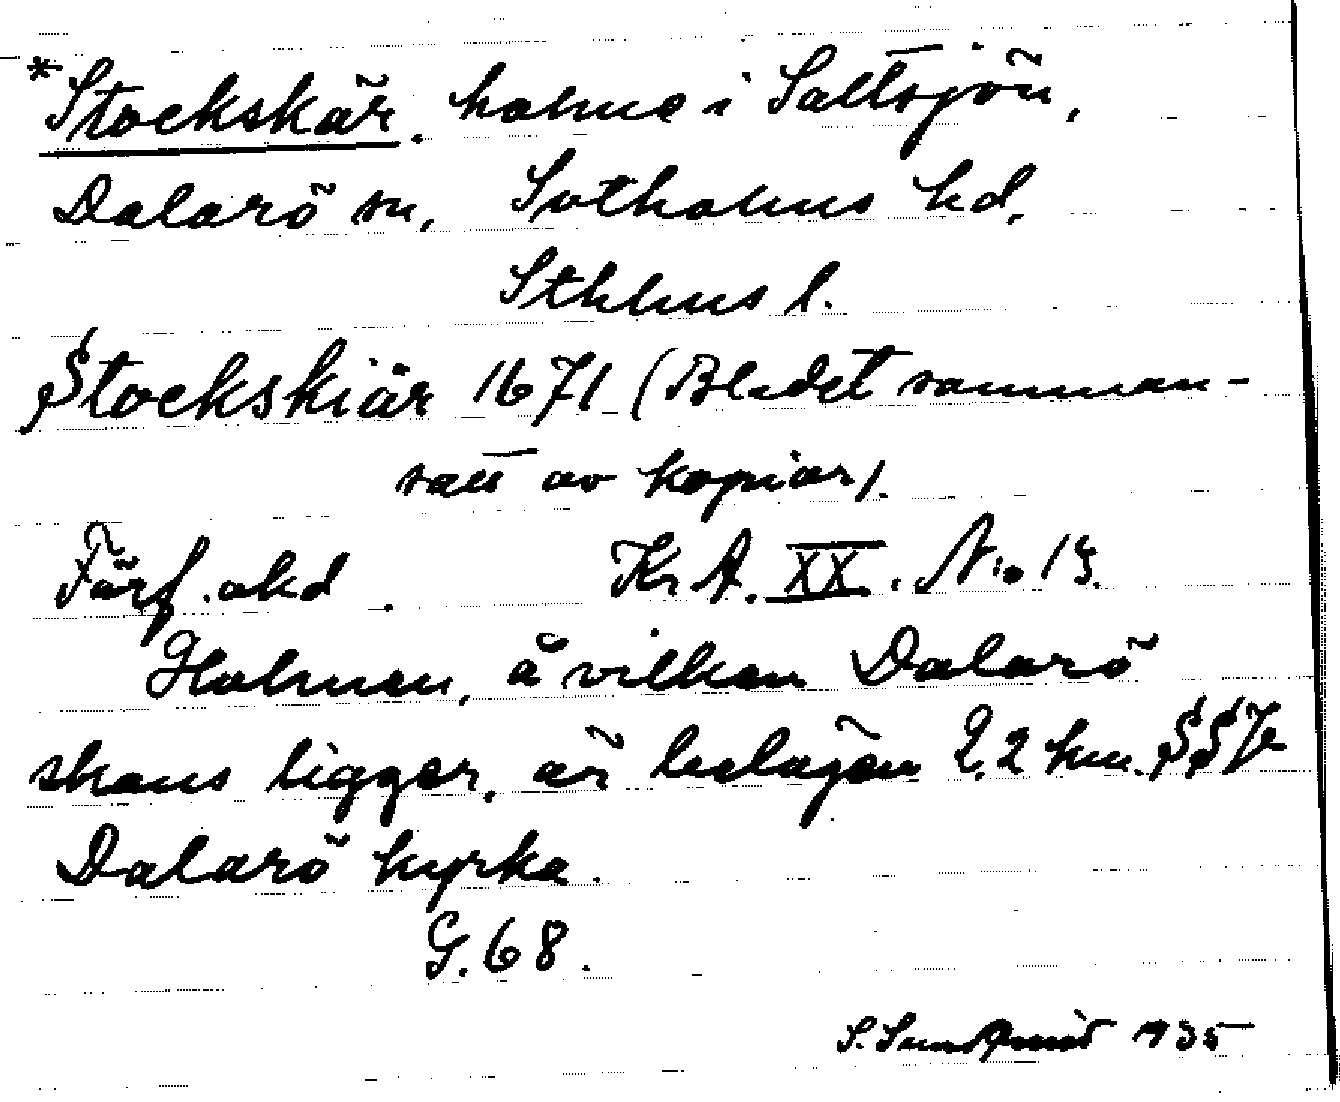 *Stockskär. holme i Saltsjön,
Dalarö sn, Sotholms hd,
Sthlms l.
Stockskiär 1671 (Bladet samman-
satt av kopior).
Förf. okd. Kr A. XX. No 15.
Holmen, å vilken Dalarö
skans ligger, är belägen 2,2 km. SSV
Dalarö kyrka.
G. 68.
S. Sundqvist 1935